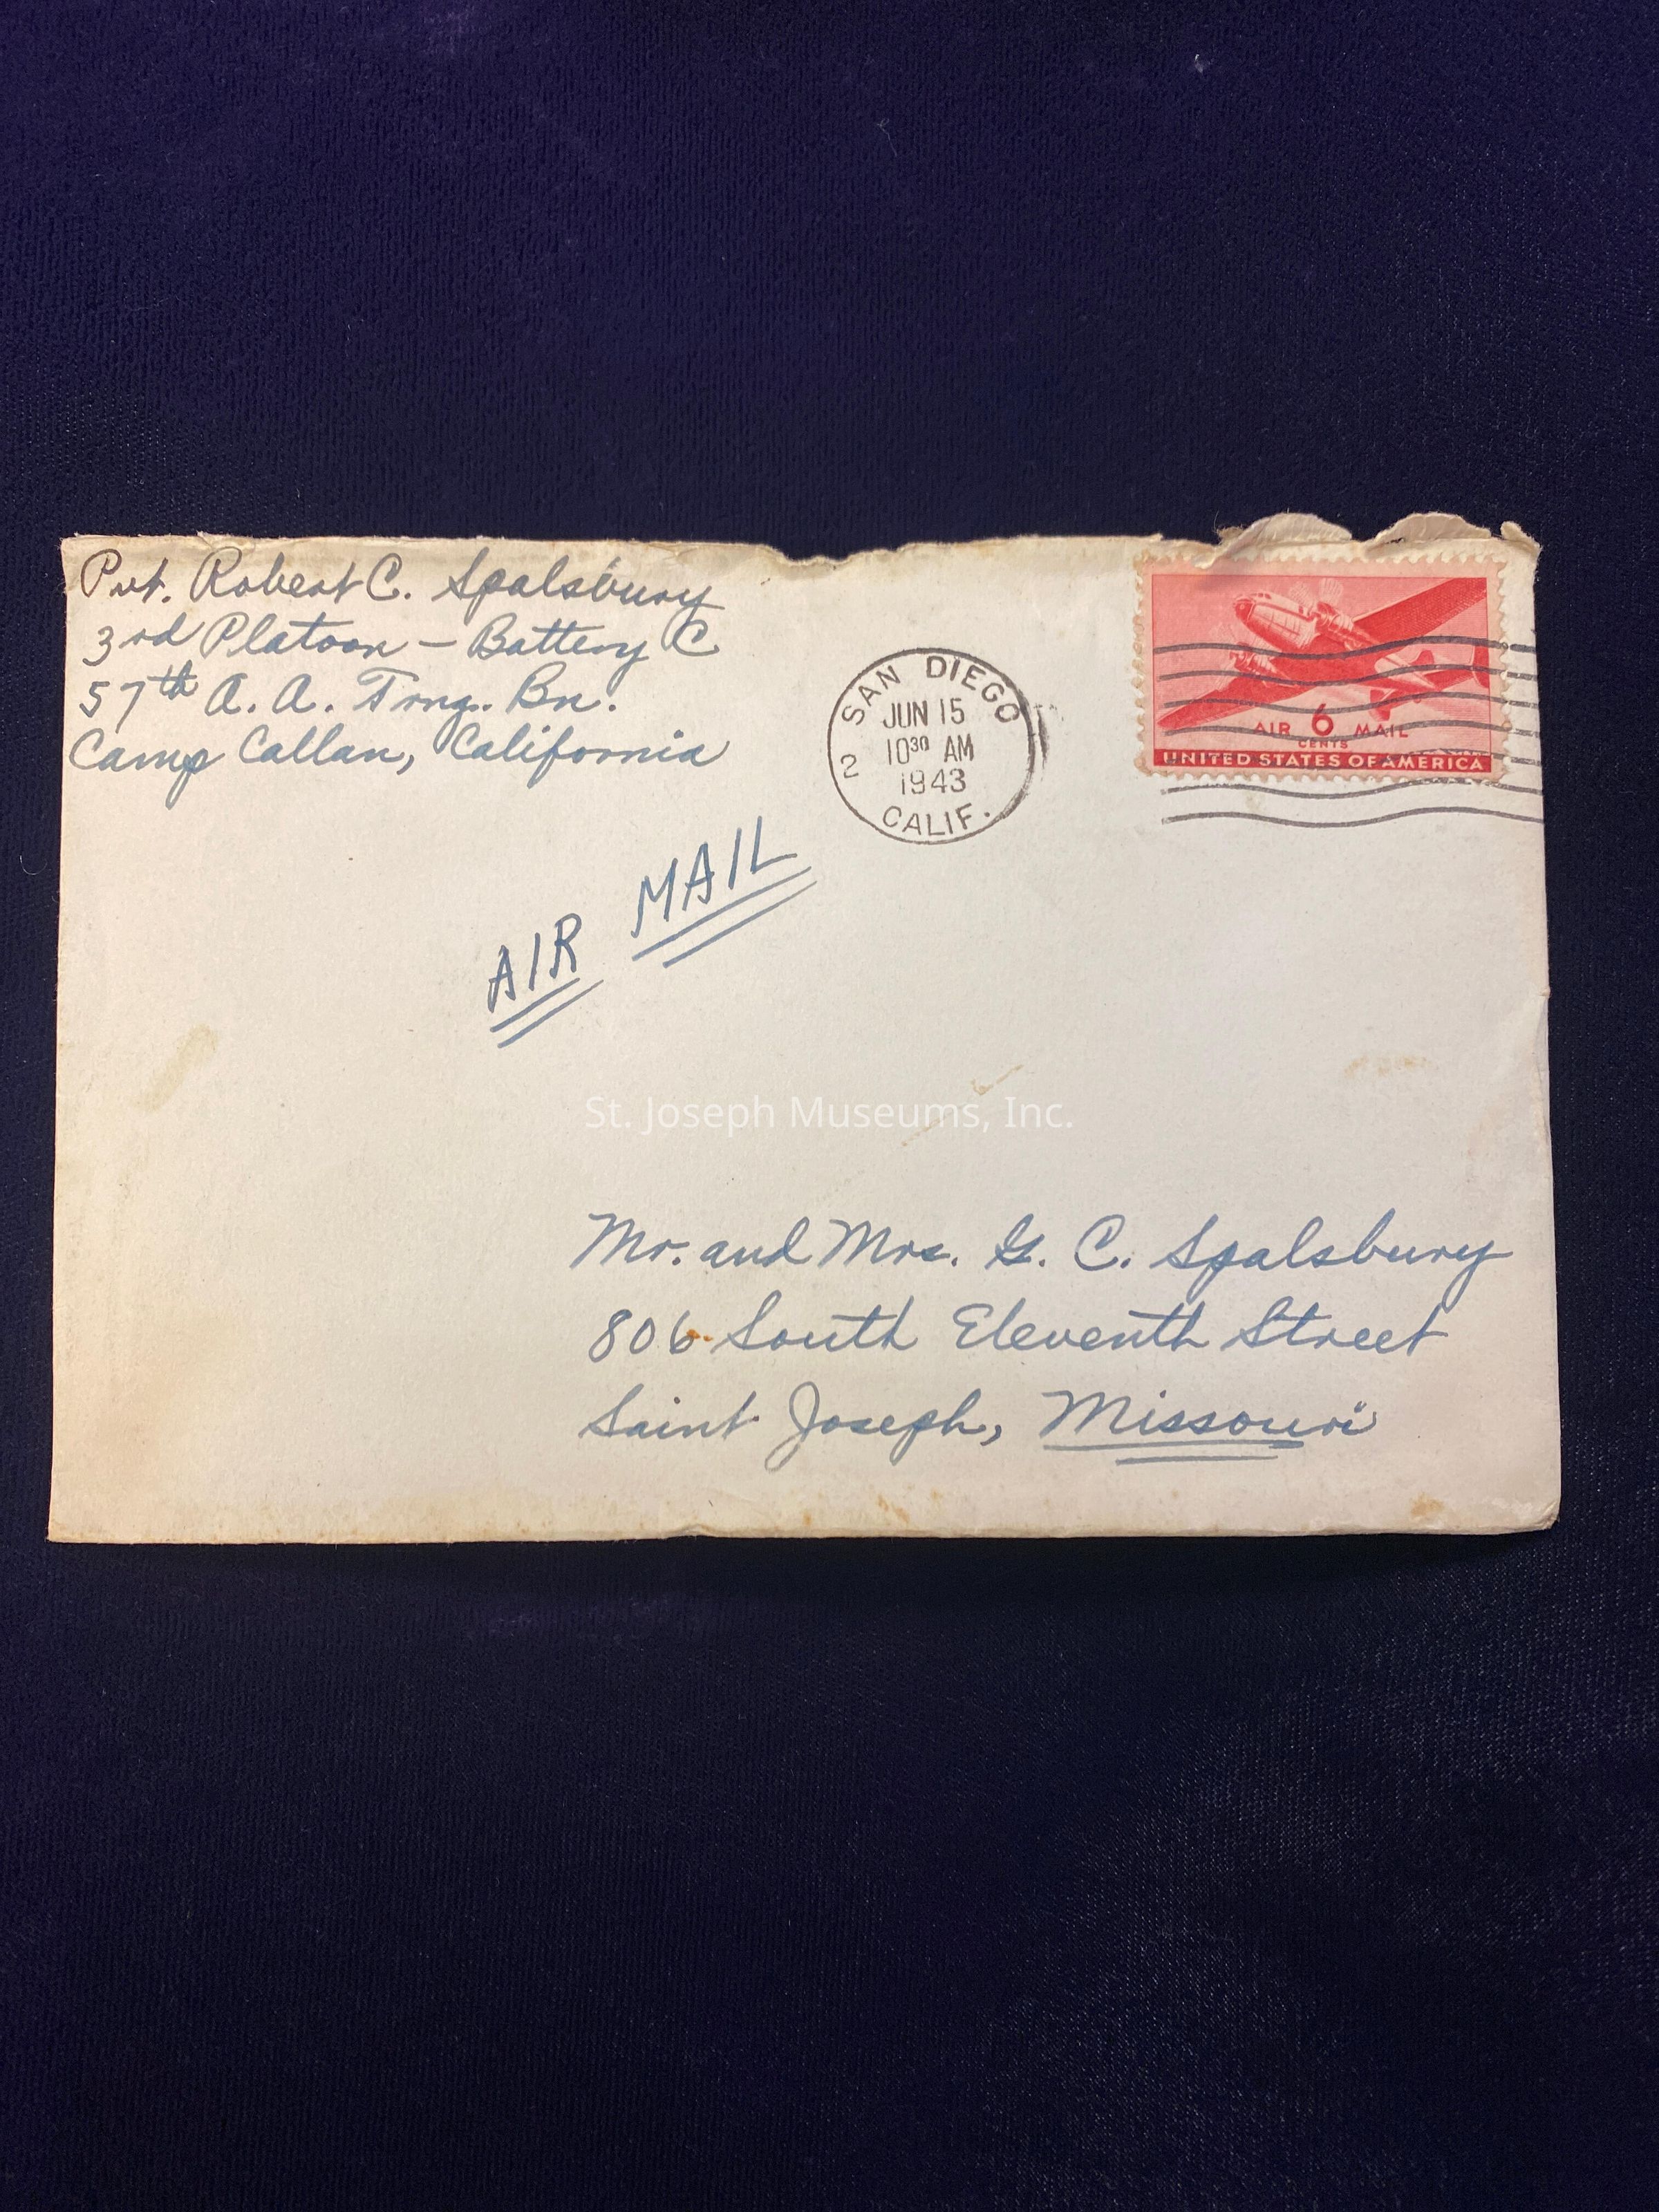 Pvt. Robert C. Spalsbury
3rd Platoon - Battery C
57th A. A. Trng. Bn.
Camp Callan, California
SAN DIEGO
JUN 15
10 30 AM
2
1943
CALIF.
AIR 6 MAIL
CENTS
UNITED STATES OF AMERICA
AIR MAIL
St. Joseph Museums, Inc.
Mr. and Mrs. G. C. Spalsbury
806 South Eleventh Street
Saint Joseph, Missouri